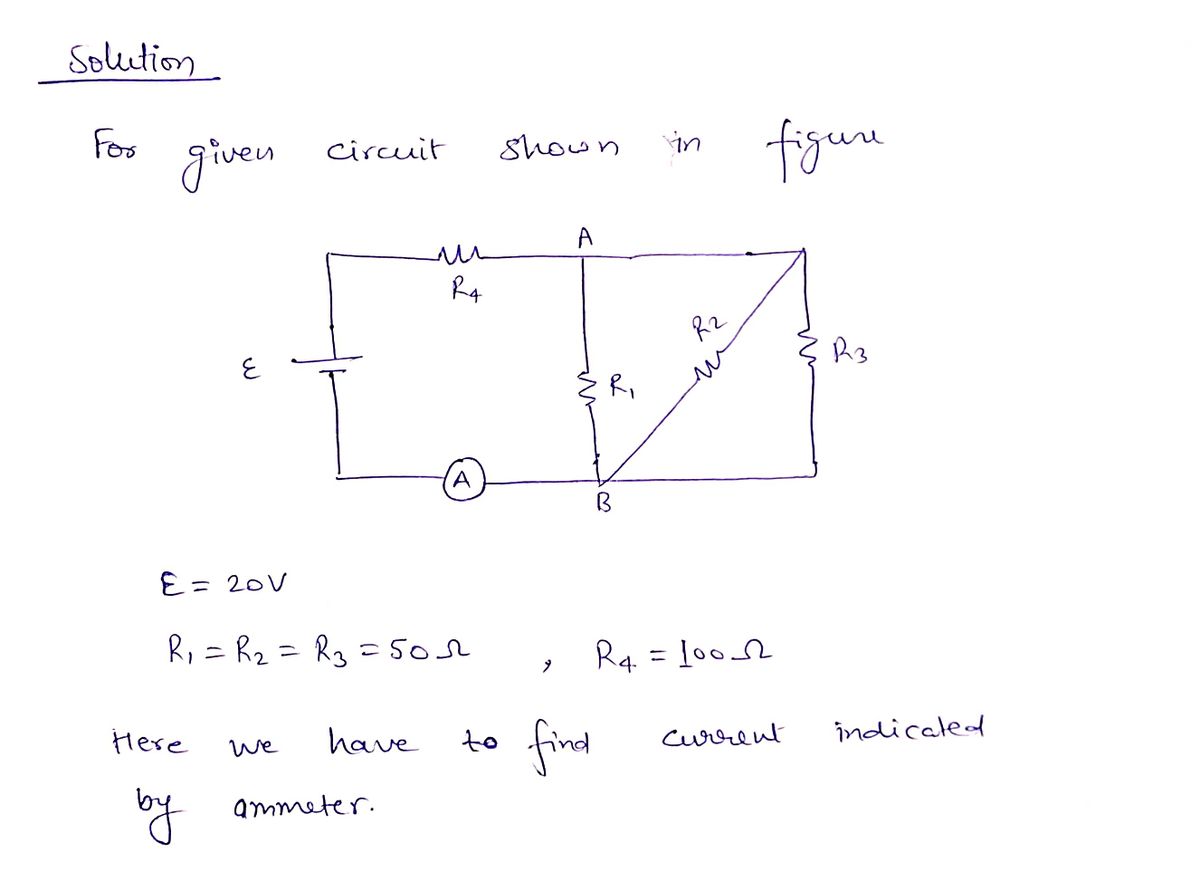 Solution
For given circuit shown in figure
A
R4
R2
ε
R3
R1
A
B
ε = 20V
R1 = R2 = R3 = 50Ω , R4 = 100Ω
Here we have to find current indicated
by ammeter.